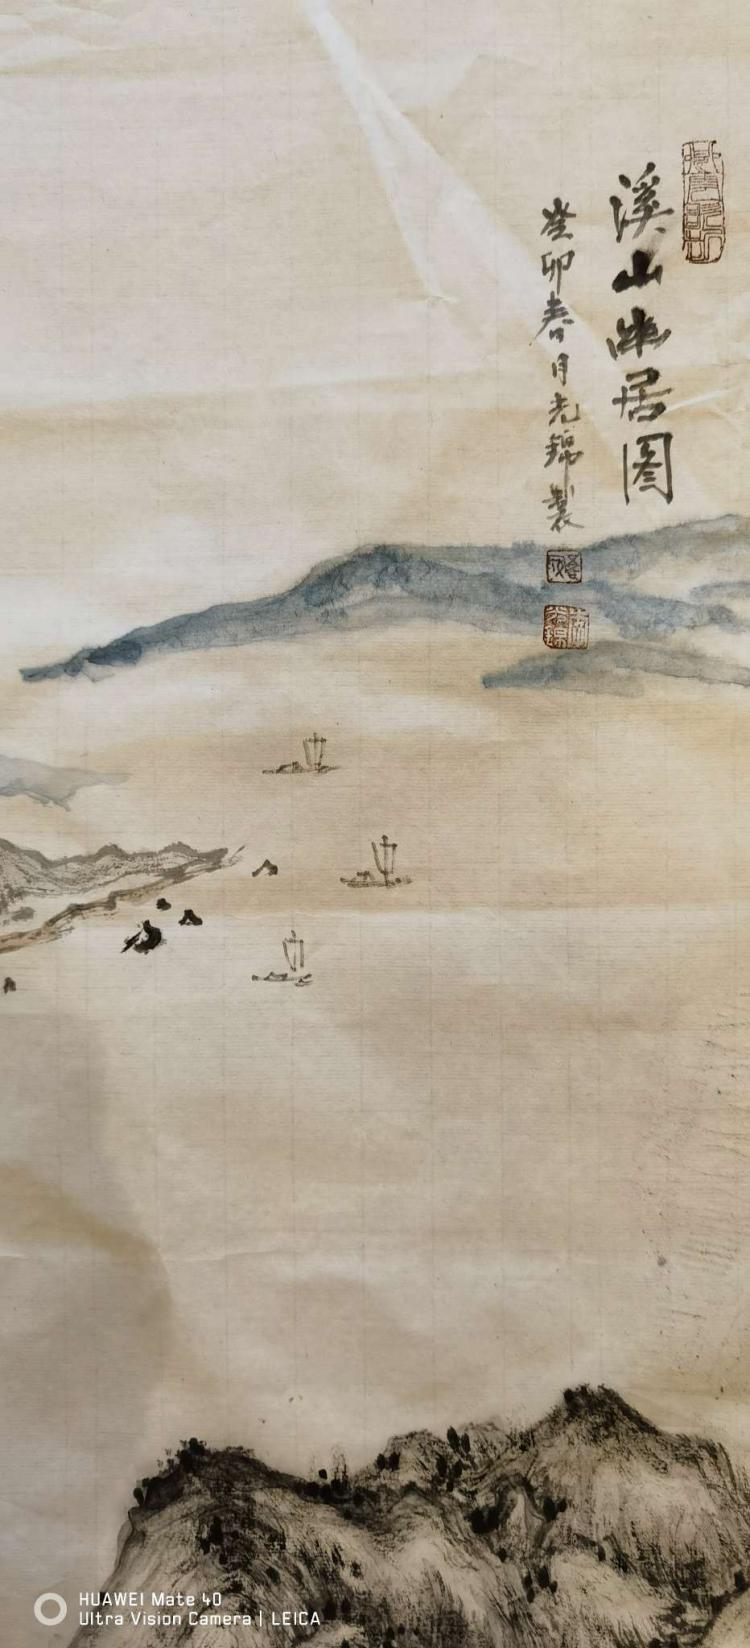 溪山幽居图
癸卯春月光锦製
HUAWEI Mate 40
Ultra Vision Camera | LEICA